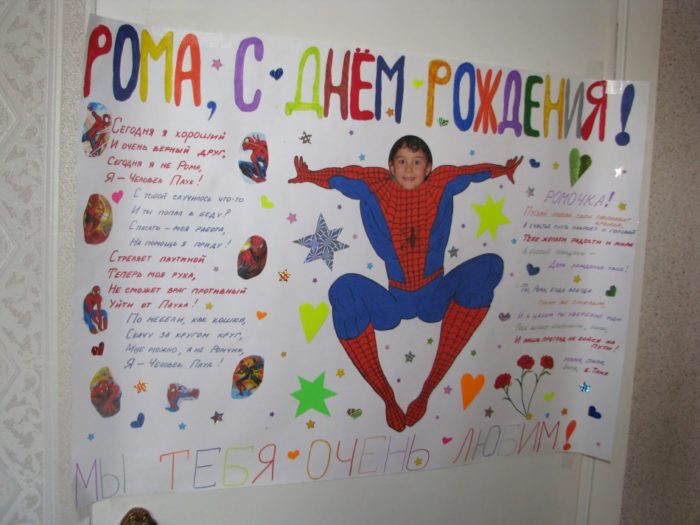 РОМА, С ДНЁМ РОЖДЕНИЯ!
Сегодня я хороший
И очень верный друг,
Сегодня я не Рома,
Я – Человек Паук!
С тобой случилось что-то
И ты попал в беду?
Спасать – моя работа,
На помощь я приду!
Стреляет паутиной
Теперь моя рука,
Не сможет враг противный
Уйти от Паука!
По мебели, как кошка,
Скачу за кругом круг,
Мне можно, я не Ромчик,
Я – Человек Паук!
РОМОЧКА!
Тебе желаем радости и мира
День рождения твой!
И ваша преград не бойся на
пути!
МЫ ТЕБЯ ОЧЕНЬ ЛЮБИМ!